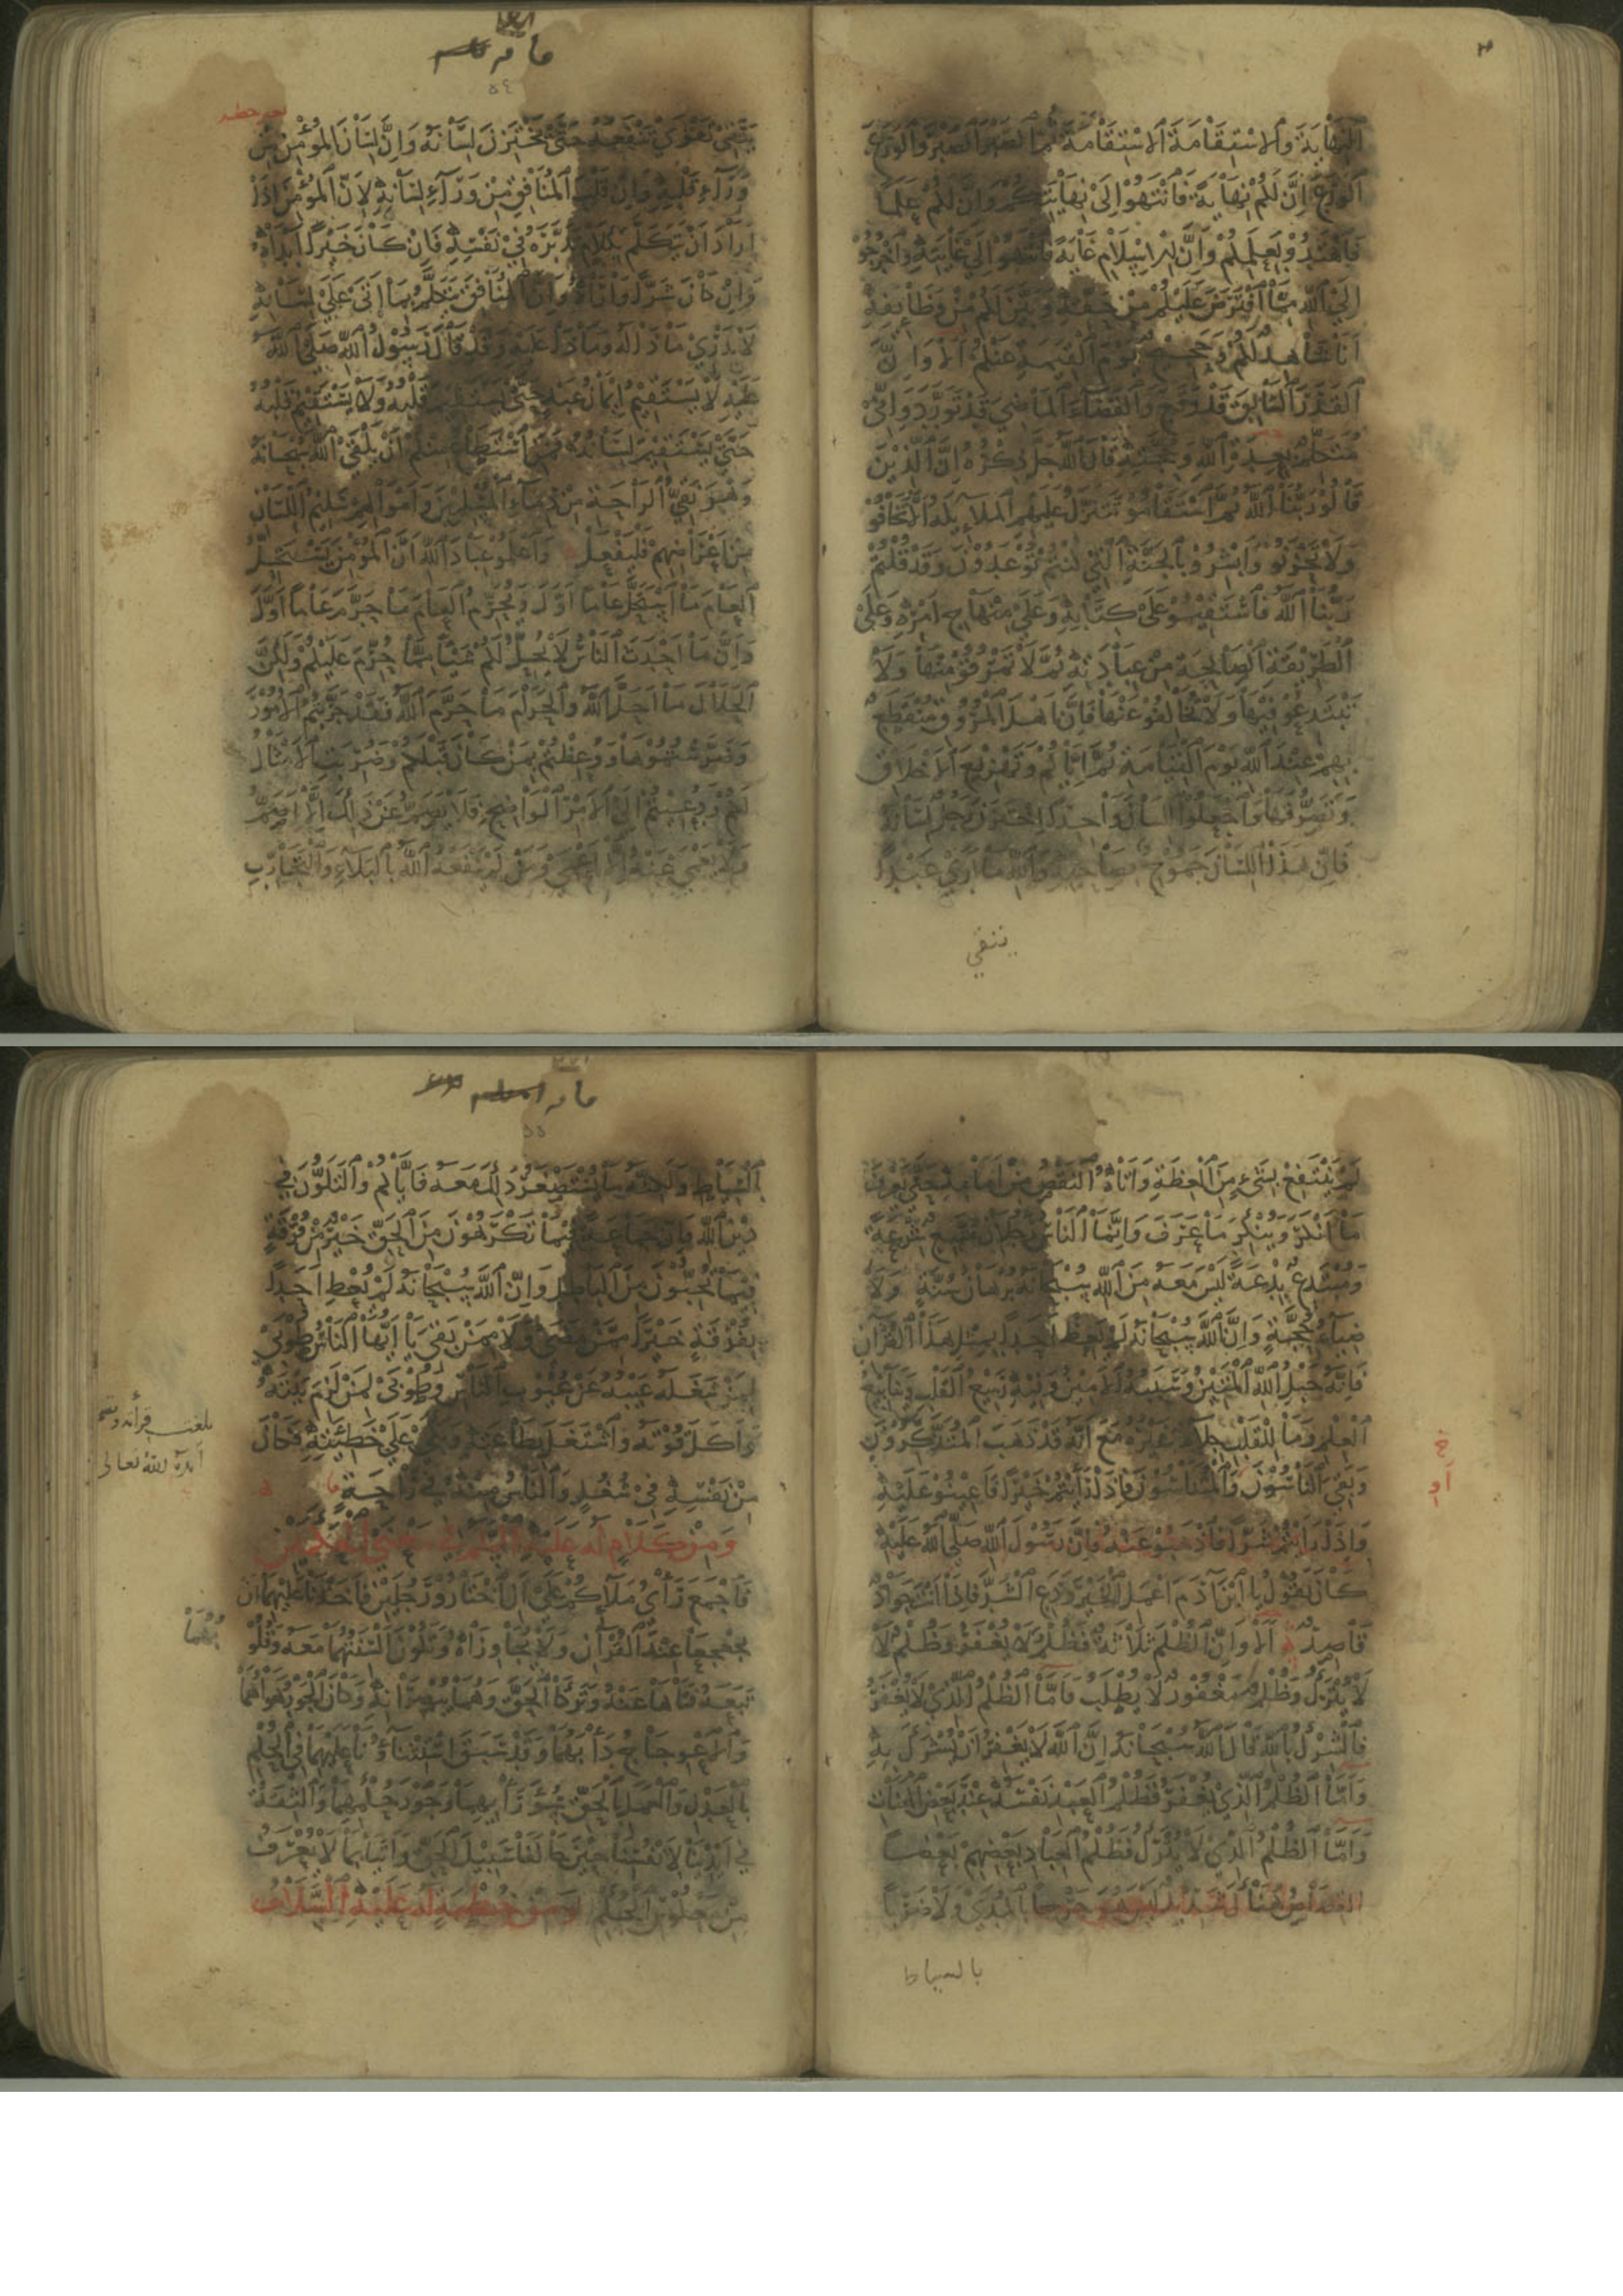 النهاية والاستقامة الاستقامة ثم الصبر الصبر والورع
الورع ان لكم نهاية فانتهوا الى نهايتكم وان لكم علما
فاهتدوا بعلمكم وان للاسلام غاية فانتهوا الى غايته واخرجوا
الى الله مما افترض عليكم من حقه وبين لكم من وظائفه
انا شاهد لكم وحجيج يوم القيمة عنكم الا وان
القدر السابق قد وقع والقضاء الماضي قد تورد واني
متكلم بعدة الله وحجته قال الله جل ذكره ان الذين
قالوا ربنا الله ثم استقاموا تتنزل عليهم الملايكة الا تخافوا
ولا تحزنوا وابشروا بالجنة التي كنتم توعدون وقد قلتم
ربنا الله فاستقيموا على كتابه وعلى منهاج امره وعلى
الطريقة الصالحة من عبادته ثم لا تمرقوا منها ولا
تبتدعوا فيها ولا تخالفوا عنها فان اهل المروق منقطع
بهم عند الله يوم القيامة ثم اياكم وتهزيع الاخلاق
وتصرفها واجعلوا اللسان واحدا ليختزن رجل لسانه
فان هذا اللسان جموح بصاحبه والله ما ارى عبدا
يتقي
يتقي تقوى تنفعه حتى يختزن لسانه وان لسان المؤمن من
وراء قلبه وان قلب المنافق من وراء لسانه لان المؤمن اذا
اراد ان يتكلم بكلام تدبره في نفسه فان كان خيرا ابداه
وان كان شرا واراه وان المنافق يتكلم بما اتى على لسانه
لا يدري ماذا له وماذا عليه وقد قال رسول الله صلى الله
عليه لا يستقيم ايمان عبد حتى يستقيم قلبه ولا يستقيم قلبه
حتى يستقيم لسانه فمن استطاع منكم ان يلقى الله سبحانه
وهو نقي الراحة من دماء المسلمين واموالهم سليم اللسان
من اعراضهم فليفعل واعلموا عباد الله ان المؤمن يستحل
العام ما استحل عاما اول ويحرم العام ما حرم عاما اول
وان ما احدث الناس لا يحل لكم شيئا مما حرم عليكم ولكن
الحلال ما احل الله والحرام ما حرم الله فقد جربتم الامور
وضرستموها ووعظتم بمن كان قبلكم وضربت الامثال
لكم ودعيتم الى الامر الواضح فلا يصم عن ذلك الا اصم
ولا يعمى عنه الا اعمى ومن لم ينفعه الله بالبلاء والتجارب
لم ينتفع بشيء من العظة واتاه النقص من امامه حتى يعرف
ما انكر وينكر ما عرف وانما الناس رجلان متبع شرعة
ومبتدع بدعة ليس معه من الله سبحانه برهان سنة ولا
ضياء حجة وان الله سبحانه لم يعظ احدا بمثل هذا القران
فانه حبل الله المتين وسببه الامين وفيه ربيع القلب وينابيع
العلم وما للقلب جلاء غيره مع انه قد ذهب المتذكرون
وبقي الناسون والمتناسون فاذا رايتم خيرا فاعينوا عليه
واذا رايتم شرا فاذهبوا عنه فان رسول الله صلى الله عليه
كان يقول يا ابن آدم اعمل الخير ودع الشر فاذا انت جواد
قاصد الا وان الظلم ثلاثة فظلم لا يغفر وظلم لا
لا يترك وظلم مغفور لا يطلب فاما الظلم الذي لا يغفر
فالشرك بالله قال الله سبحانه ان الله لا يغفر ان يشرك به
واما الظلم الذي يغفر فظلم العبد نفسه عند بعض الهنات
واما الظلم الذي لا يترك فظلم العباد بعضهم بعضا
القصاص هناك شديد ليس هو جرحا بالمدى ولا ضربا
بالسياط
خ
او
السياط ولكنه ما يستصغر ذلك معه فاياكم والتلون في
دين الله فان جماعة فيما تكرهون من الحق خير من فرقة
فيما تحبون من الباطل وان الله سبحانه لم يعط احدا
بفرقة خيرا ممن مضى ولا ممن بقي يا ايها الناس طوبى
لمن شغله عيبه عن عيوب الناس وطوبى لمن لزم بيته
واكل قوته واشتغل بطاعته وبكى على خطيئته فكان
من نفسه في شغل والناس منه في راحة
ومن كلام له عليه السلام في معنى الحكمين
فاجمع رأي ملائكم على ان اختاروا رجلين فاخذنا عليهما ان
يجعجعا عند القرآن ولا يجاوزاه وتكون السنتهما معه وقلو
تبعه فتاها عنه وتركا الحق وهما يبصرانه وكان الجور هواهما
والاعوجاج دأبهما وقد سبق استثناؤنا عليهما في الحكم
بالعدل والعمل بالحق سوء رأيهما وجور حكمهما والثقة
في ايدينا لانفسنا حين خالفا سبيل الحق واتيا بما لا يعرف
من معكوس الحكم ومن خطبة له عليه السلام
بلغت قراءته
ايده الله تعالى
بهما